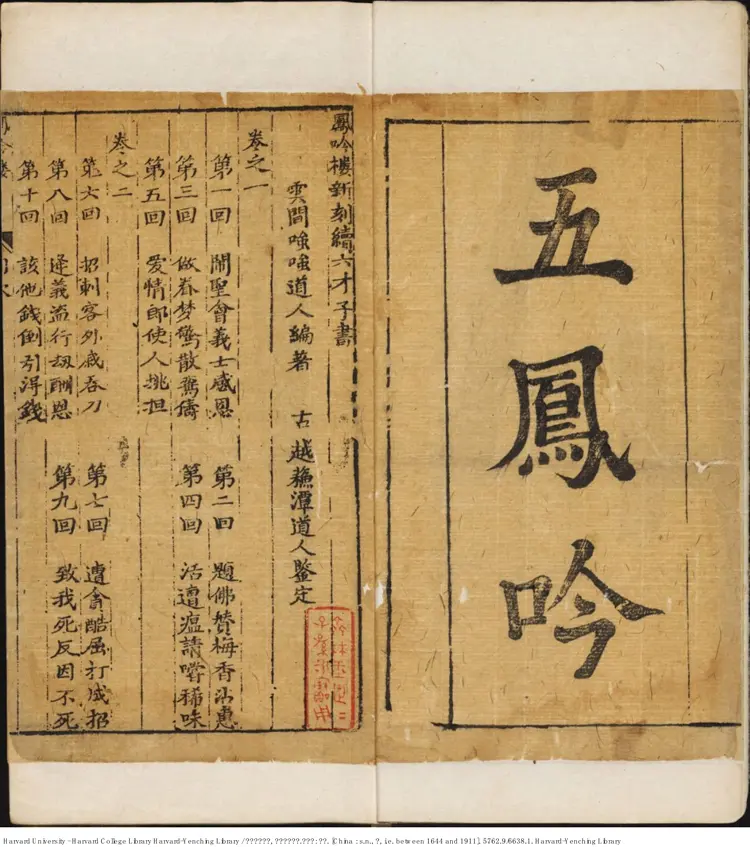 五鳳吟
鳳吟樓新刻續六才子書
雲間嗤嗤道人編著 古越蘓潭道人鑒定
卷之一
第一回 鬧聖會義士感恩 第二回 題佛贊梅香沾惠
第三回 做春梦驚散鴛儔 第四回 活遭瘟請嚐稀味
第五回 愛情郎使人挑担
卷之二
第六回 招刺客外戚吞刀 第七回 遭貪酷屈打成招
第八回 逢義盗行刼酬恩 第九回 致我死反因不死
第十回 該他錢倒引得錢
Harvard University - Harvard College Library Harvard-Yenching Library / ??????, ??????.???:??. [China : s.n., ?, ie. between 1644 and 1911]. 5762.9/6638.1. Harvard-Yenching Library